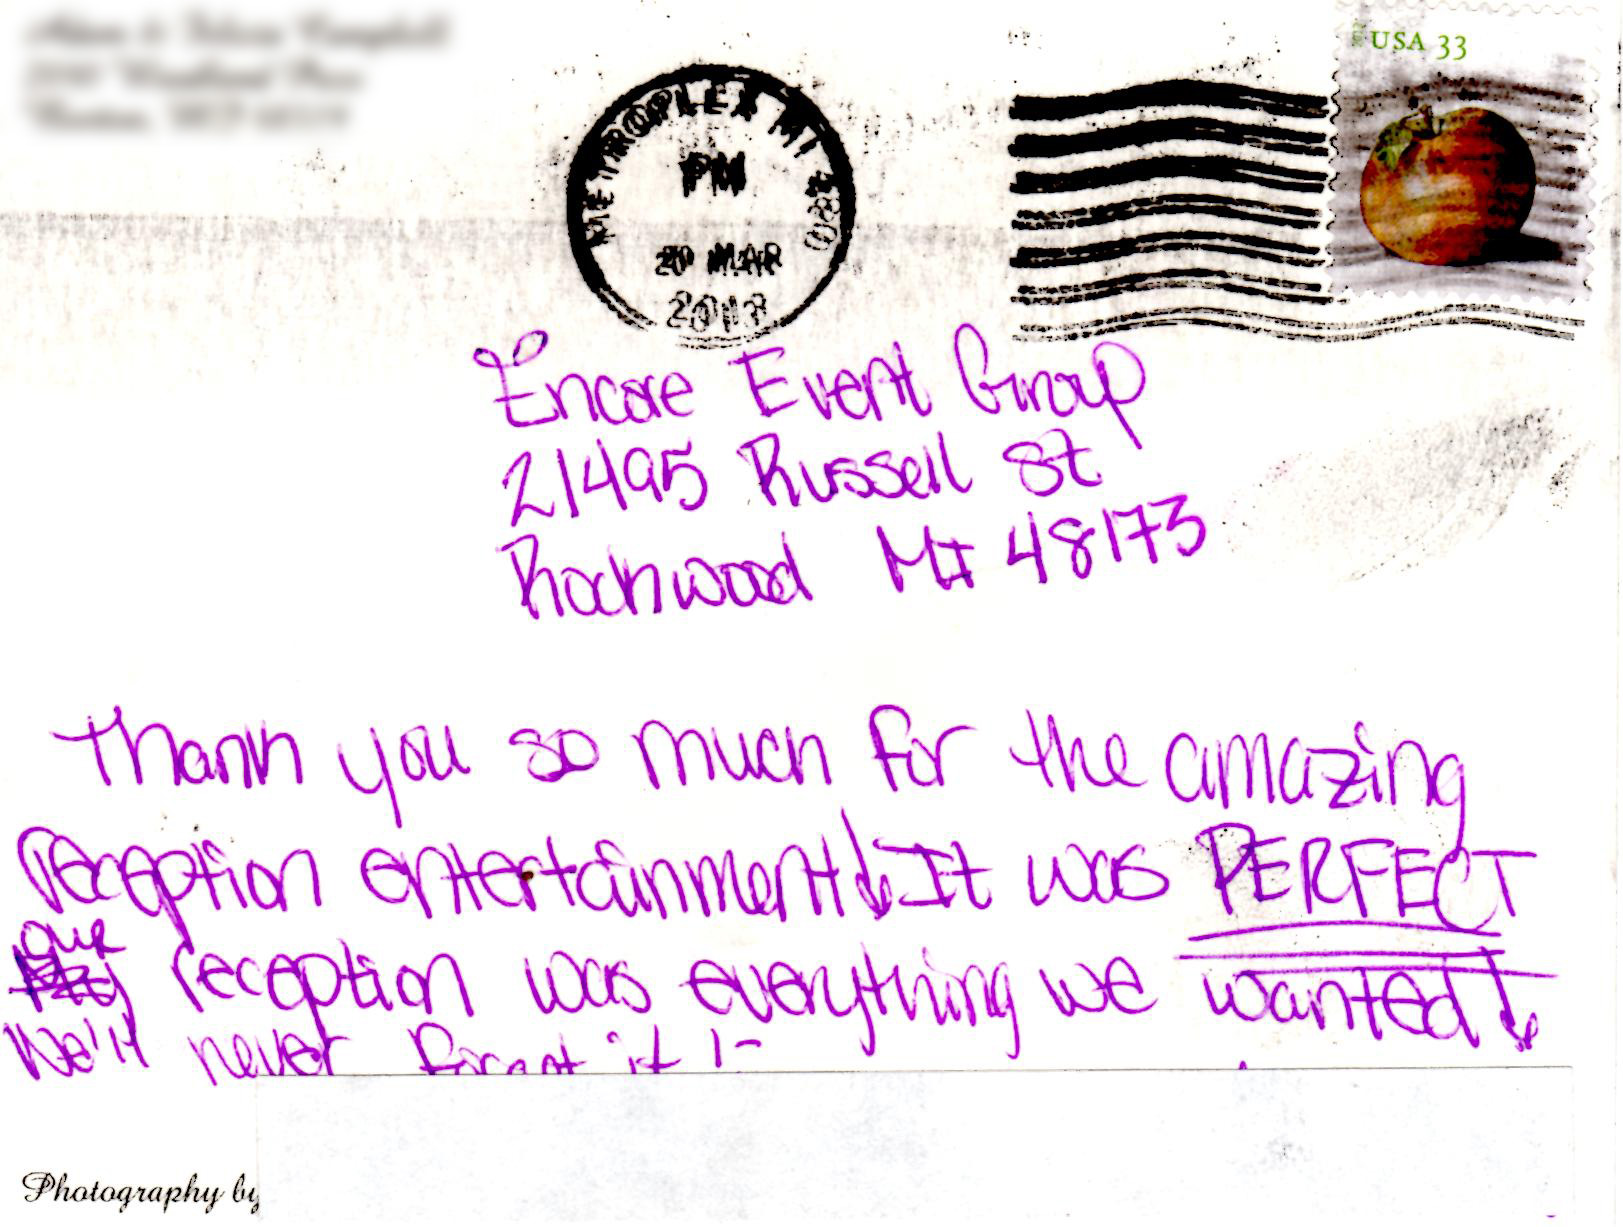 USA 33
METROPLEX MI
PM
20 MAR
2013
Encore Event Group
21495 Russell St
Rockwood MI 48173
Thank you so much for the amazing
reception entertainment! It was PERFECT
our reception was everything we wanted!
We'll never forget it!
Photography by